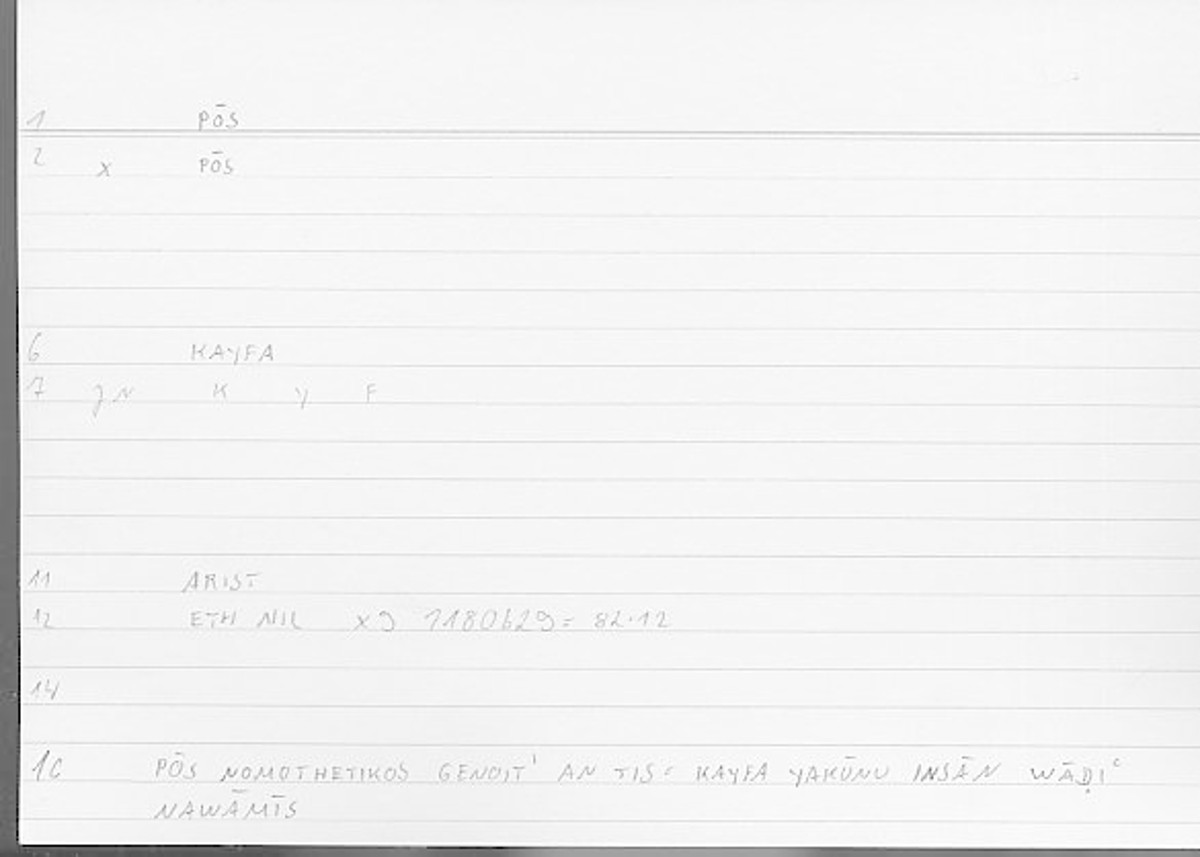 1 PŌS
2 x PŌS
6 KAYFA
7 JN K Y F
11 ARIST
12 ETH NIC X 9 1180b29 = 82.12
14
PŌS NOMOTHETIKOS GENOIT' AN TIS = KAYFA YAKŪNU INSĀN WĀḌIʿ
NAWĀMĪS